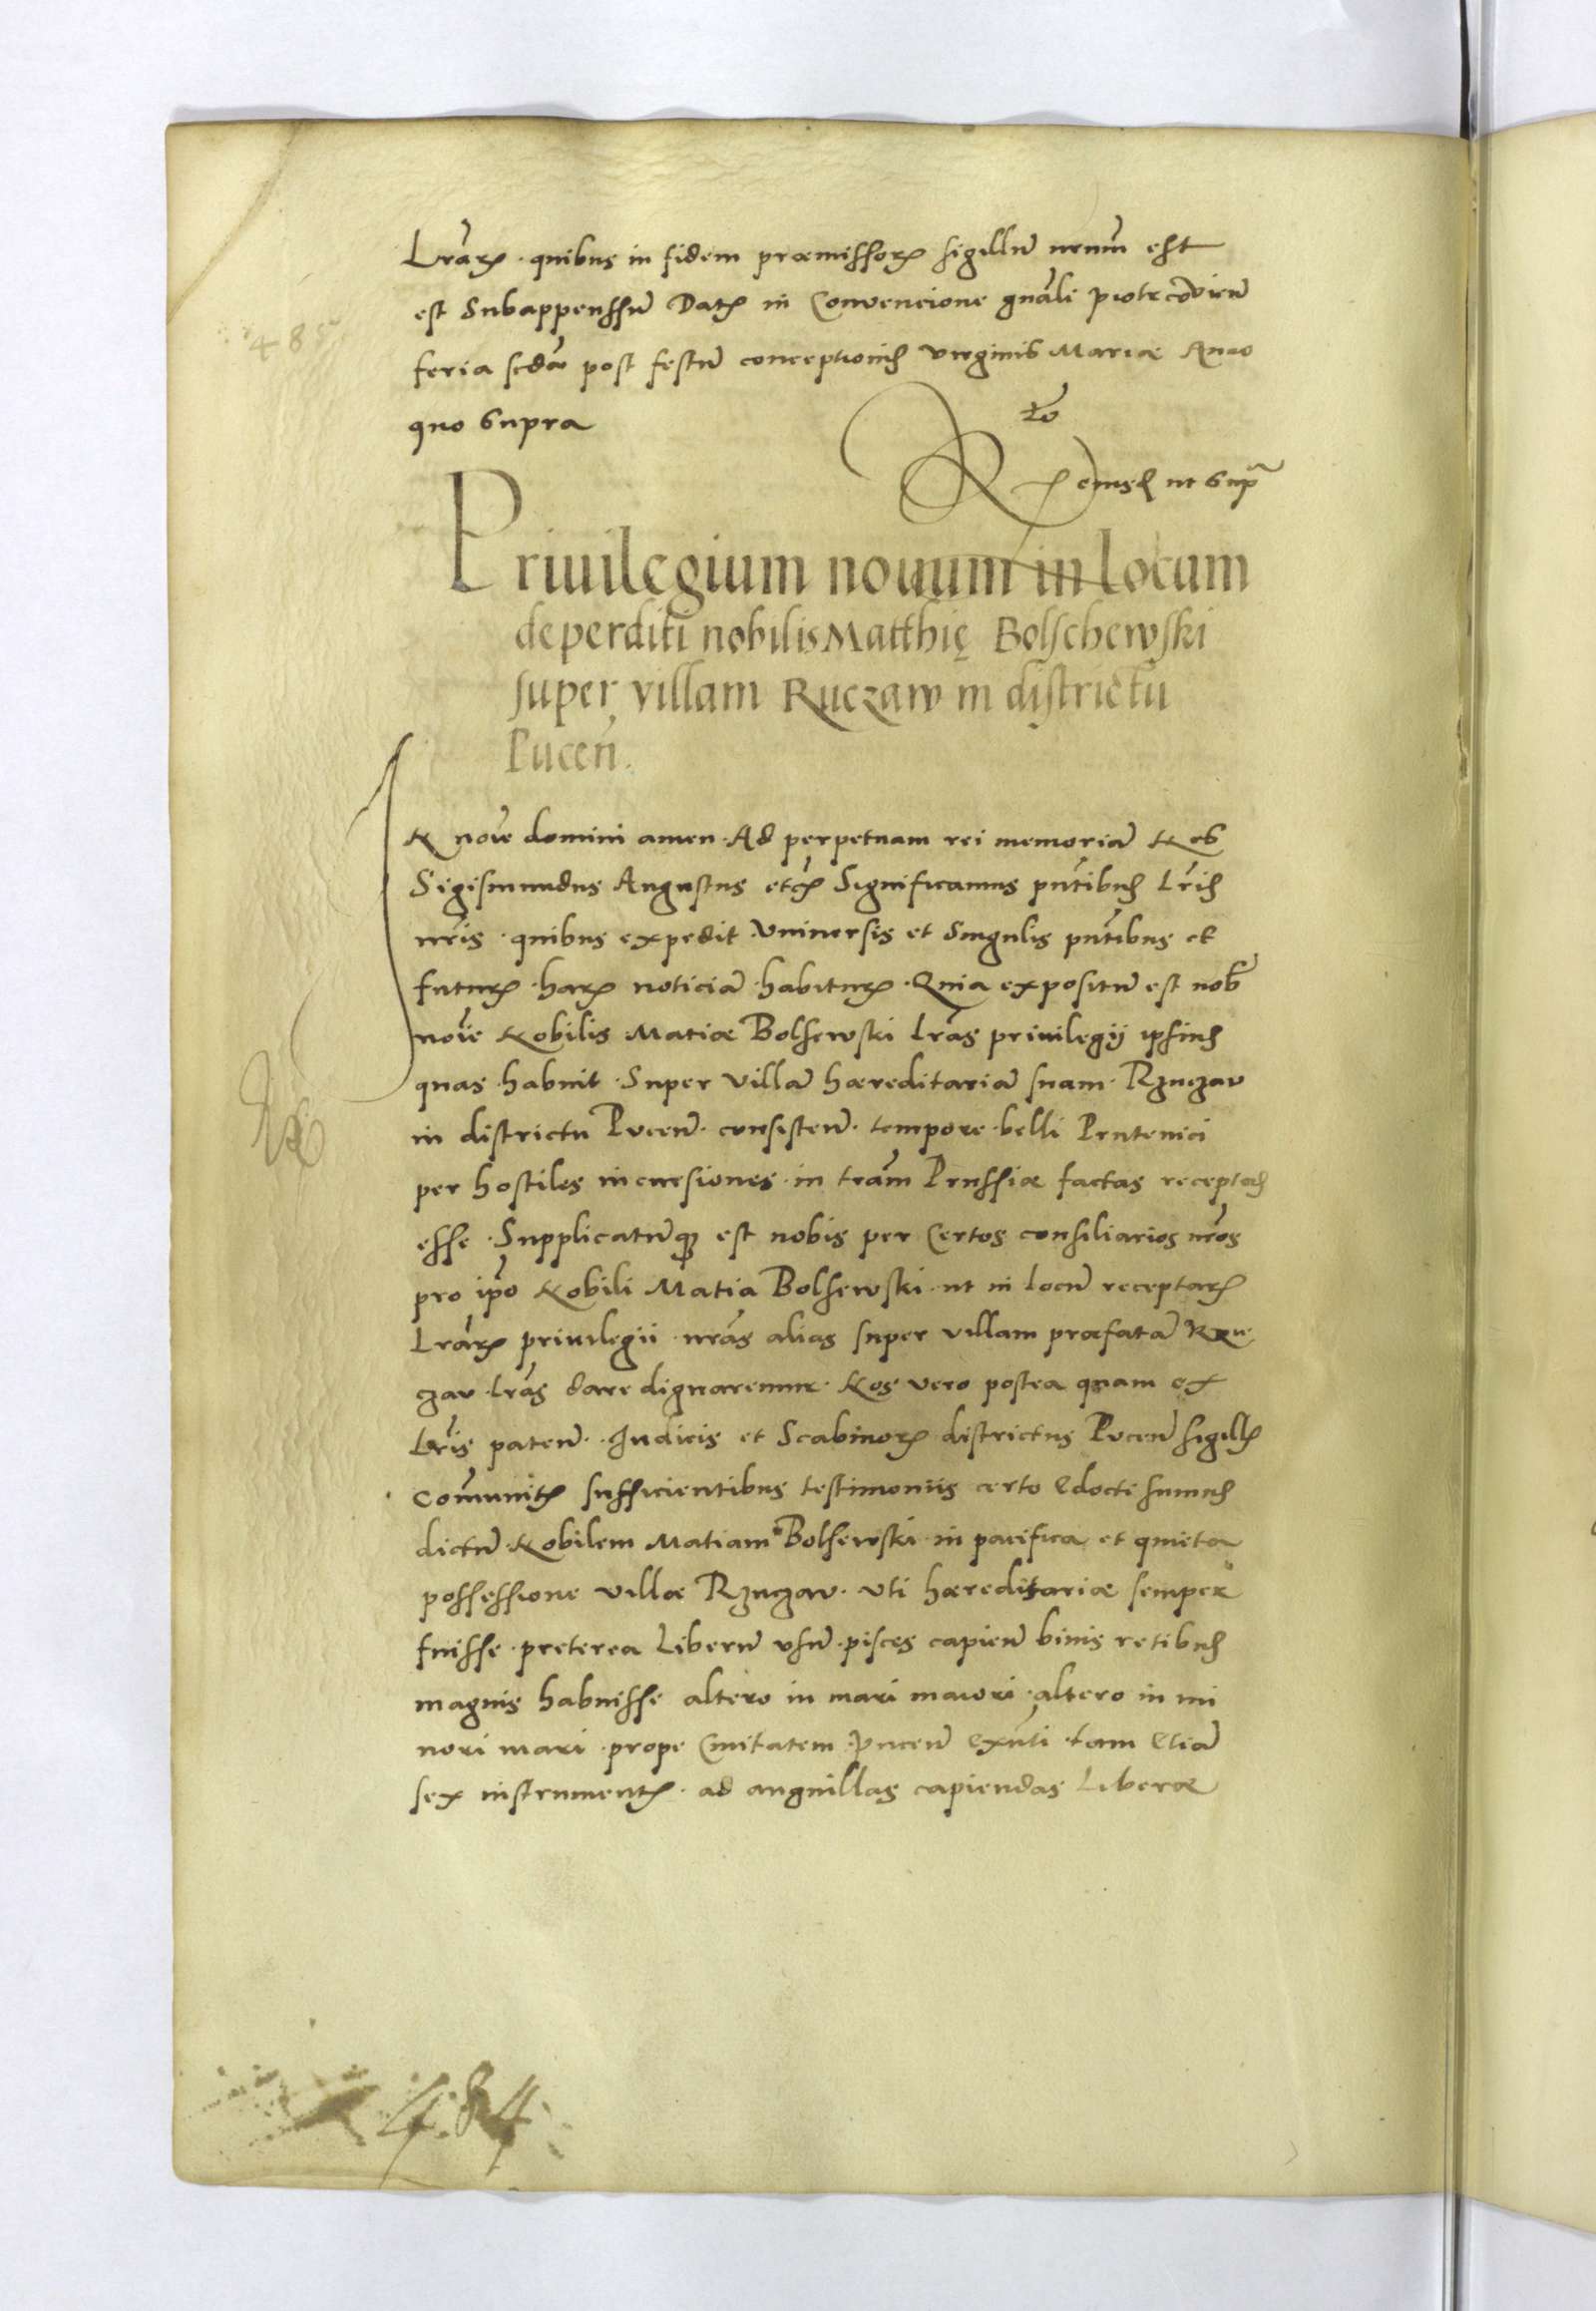 Lrãrꝝ quibus in fidem præmissorꝝ sigillũ nrum̃ est
est Subappenssũ Datꝝ in Convencione gnãli piotrcovieñ
feria scdã post festũ conceptionis virginis Mariæ Anno
quo supra
Rᵗᵒ eiusdꝫ ut supᵃ
Priuilegium nouum in locum
deperditi nobilis Matthię Bolschewski
super villam Ruczaw in districtu
Puceñ.
IN noĩe domini amen. Ad perpetuam rei memoriã Nos
Sigismundus Augustus etcꝫ Significamus pñtibus Lr̃is
nr̃is quibus expedit Vniuersis et Singulis pñtibus et
futurꝝ harꝝ noticiã habiturꝝ Quia expositũ est nob̃
noĩe Nobilis Matiæ Bolsewski lrãs priuilegij ipsius
quas habuit Super Villã hæreditariã suam Rzuczav
in districtu Puceñ consisteñ tempore belli Prutenici
per hostiles incursiones in terãm Prussiæ factas receptas
esse Supplicatũqꝫ est nobis per certos consiliarios nr̃os
pro ip̃o Nobili Matia Bolsewski ut in locũ receptarꝝ
Lrãrꝝ priuilegii nrãs alias super villam præfatã Rzu
czav lrãs dare dignaremur. Nos vero postea quam ex
Lr̃is pateñ Iudicis et Scabinorꝝ districtus Puceñ sigillꝫ
Com̃unitꝫ sufficientibus testimoniis certo edocti sumus
dictũ Nobilem Matiam Bolsewski in pacifica et quieta
possessione villæ Rzuczav uti hæreditariæ semper
fuisse preterea Liberũ usũ pisces capieñ binis retibus
magnis habuisse altero in mari maiori altero in mi
nori mari prope Ciuitatem Puceñ exñti tam etiã
sex instrumentꝫ ad anguillas capiendas Liberæ
484